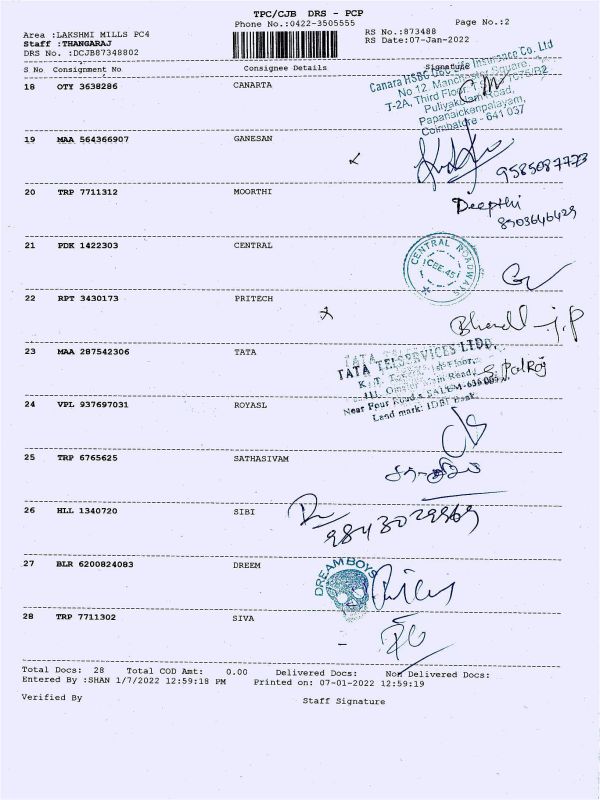 TPC/CJB DRS - PCP
Phone No.:0422-3505555
Page No.:2
Area :LAKSHMI MILLS PC4
RS No.:873488
Staff :THANGARAJ
RS Date:07-Jan-2022
DRS No. :DCJB87348802
S No Consignment No Consignee Details Signature
18 OTY 3638286 CANARTA
Canara HSBC OBC Life Insurance Co. Ltd
No 12, Manchester Square,
T-2A, Third Floor,
Puliyakulam Road,
Papanaickenpalayam,
Coimbatore - 641 037
19 MAA 564366907 GANESAN
9585087723
20 TRP 7711312 MOORTHI
Deepthi
8903646429
21 PDK 1422303 CENTRAL
CENTRAL ROADWAYS
CBE.45
22 RPT 3430173 PRITECH
23 MAA 287542306 TATA
TATA TELSERVICES LTD.
Near Four Roads, SALEM-636 007
Land mark: IDBI Bank.
24 VPL 937697031 ROYASL
25 TRP 6765625 SATHASIVAM
26 HLL 1340720 SIBI
9843029869
27 BLR 6200824083 DREEM
DREAM BOYS
28 TRP 7711302 SIVA
Total Docs: 28 Total COD Amt: 0.00 Delivered Docs: Non Delivered Docs:
Entered By :SHAN 1/7/2022 12:59:18 PM Printed on: 07-01-2022 12:59:19
Verified By
Staff Signature